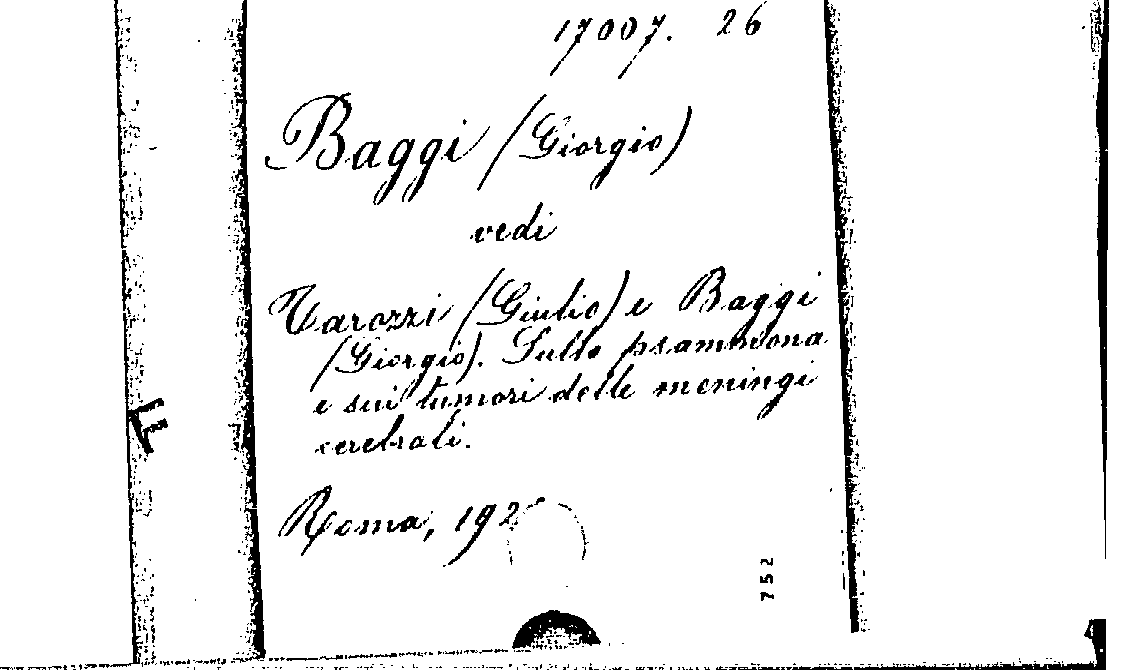 17007. 26
Baggi (Giorgio)
vedi
Tarozzi (Giulio) e Baggi
(Giorgio). Sullo psammoona
e sui tumori delle meningi
cerebrali.
Roma, 192
752